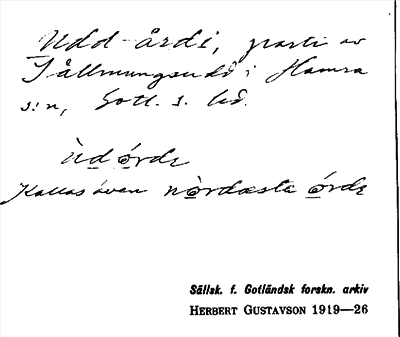 Udd-årdi, parti av
Tällmungsudd i Hamra
s:n, Gotl. s. hd.
Ùd órdɛ
Kallas även nòrdæsta órdɛ
Sällsk. f. Gotländsk forskn. arkiv
HERBERT GUSTAVSON 1919—26